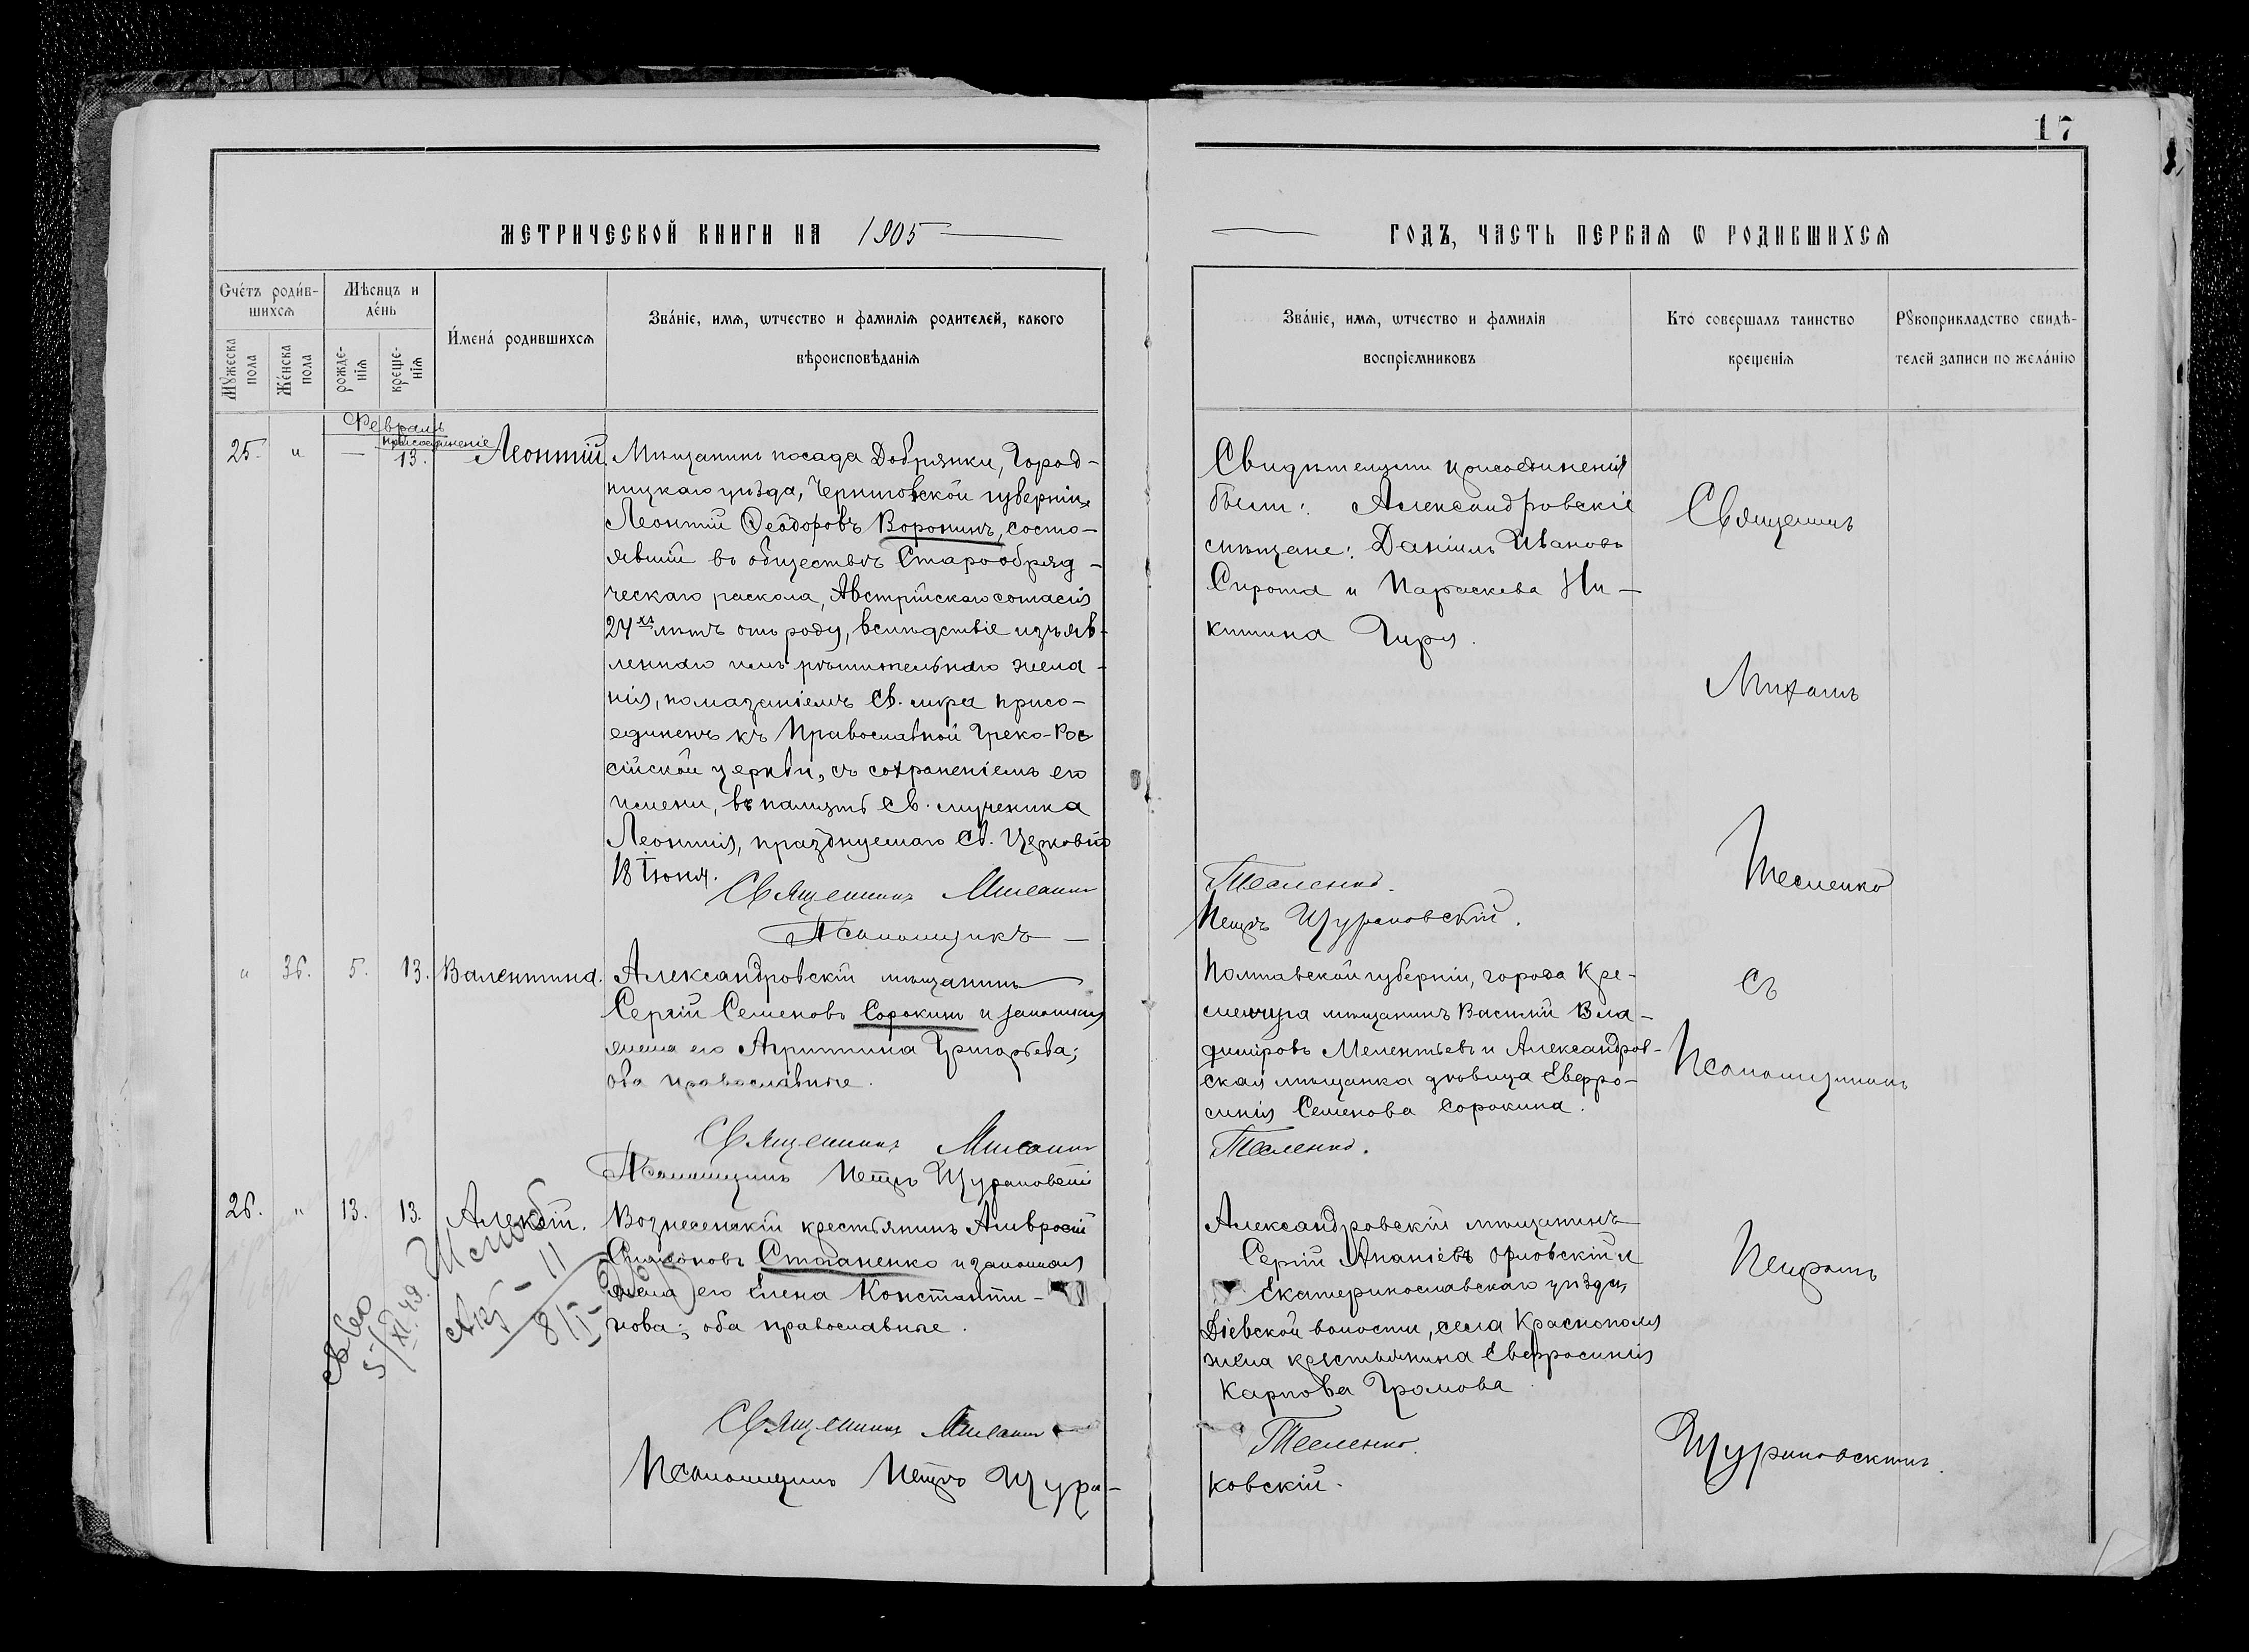 17
МЕТРИЧЕСКОЙ КНИГИ НА 1905
ГОДЪ, ЧАСТЬ ПЕРВАЯ Ѡ РОДИВШИХСЯ
Счéтъ роди́в-
шихсѧ
Мѣсяцъ и
дéнь
Мꙋжеска
пола
Жéнска
пола
рожде-
нїѧ
креще-
нїѧ
И́мена́ родившихсѧ
Зва́нїе, имѧ, ѡтчество и фамилїѧ родителей, какого
вѣроисповѣданїѧ
Зва́нїе, имѧ, ѡтчество и фамилїѧ
воспрїемниковъ
Кто́ совершалъ таинство
крещенїѧ
Рꙋкоприкладство свидѣ-
телей записи по жела́нїю
Февраль
присоединеніе
25. " — 13. Леонтій.
Мѣщанинъ посада Добрянки, Город-
ницкаго уѣзда, Черниговской губерніи,
Леонтій Ѳеодоровъ Воронинъ, состо-
явшій въ обществѣ Старообряд-
ческаго раскола, Австрійскаго согласія
24хъ лѣтъ отъ роду, вслѣдствіе изъяв-
леннаго имъ рѣшительнаго жела-
нія, помазаніемъ Св. мира присо-
единенъ къ Православной Греко-Рос
сійской церкви, съ сохраненіемъ его
имени, въ память Св. мученика
Леонтія, празднуемаго Св. Церковію
18 Іюня.
Священникъ Михаилъ
Псаломщикъ —
Свидѣтелями присоединенія
были: Александровскіе
мѣщане: Даніилъ Ивановъ
Сирота и Параскева Ни-
китина Гиря.
Тесленко.
Петръ Щураковскій.
Священникъ
Михаилъ
Тесленко
" 36. 5. 13. Валентина.
Александровскій мѣщанинъ
Сергій Семеновъ Сорокинъ и законная
жена его Агриппина Григорьева;
оба православные.
Священникъ Михаилъ
Псаломщикъ Петръ Щураковскій
Полтавской губерніи, города Кре-
менчуга мѣщанинъ Василій Вла-
диміровъ Мелентьевъ и Александров-
ская мѣщанка дѣвица Евфро-
синія Семенова Сорокина.
Тесленко.
съ
Псаломщикомъ
26. " 13. 13. Алексѣй.
Вознесенскій крестьянинъ Амвросій
Симеоновъ Стоганенко и законная
жена его Елена Константи-
нова; оба православные.
Священникъ Михаилъ
Псаломщикъ Петръ Щура-
Александровскій мѣщанинъ
Сергій Ананіевъ Орловскій и
Екатеринославскаго уѣзда,
Діевской волости, села Краснополя
жена крестьянина Евфросинія
Карпова Громова
Тесленко.
ковскій.
Петромъ
Щураковскимъ.
5/XI.49.